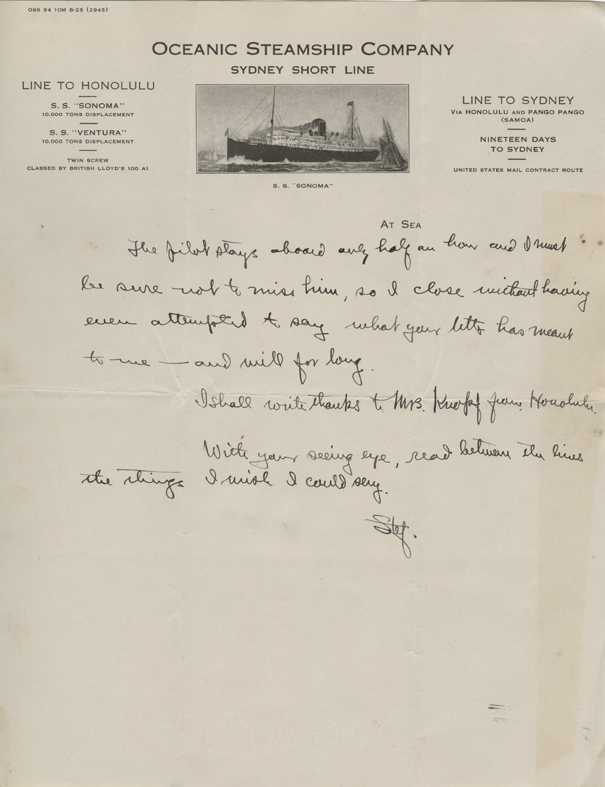 OSS 94 10M 8-23 (2945)
OCEANIC STEAMSHIP COMPANY
SYDNEY SHORT LINE
LINE TO HONOLULU
S. S. "SONOMA"
10,000 TONS DISPLACEMENT
S. S. "VENTURA"
10,000 TONS DISPLACEMENT
TWIN SCREW
CLASSED BY BRITISH LLOYD'S 100 A1
S. S. "SONOMA"
LINE TO SYDNEY
VIA HONOLULU AND PANGO PANGO
(SAMOA)
NINETEEN DAYS
TO SYDNEY
UNITED STATES MAIL CONTRACT ROUTE
AT SEA
The pilot stays aboard only half an hour and I must
be sure not to miss him, so I close without having
even attempted to say what your letter has meant
to me — and will for long.
I shall write thanks to Mrs. Knopf from Honolulu.
With your seeing eye, read between the lines
the things I wish I could say.
Stef.